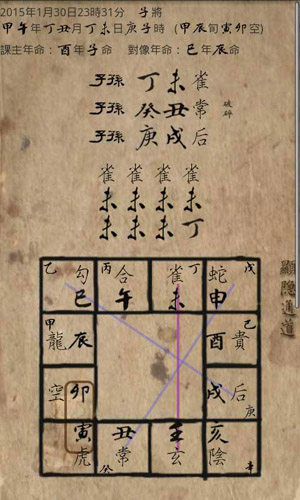 2015年1月30日23時31分 子將
甲午年丁丑月丁未日庚子時 (甲辰旬寅卯空)
課主年命：酉年子命 對像年命：巳年辰命
子孫 丁未 雀
子孫 癸丑 常 破碎
子孫 庚戌 后
雀 雀 雀 雀
未 未 未 未
未 未 未 丁
顯隱通道
乙 勾 丙 合 雀 丁 蛇 戊
巳 午 未 申
甲 龍 辰 酉 貴 己
空 卯 戌 后 庚
寅 丑 壬 亥
虎 常 癸 玄 陰 辛